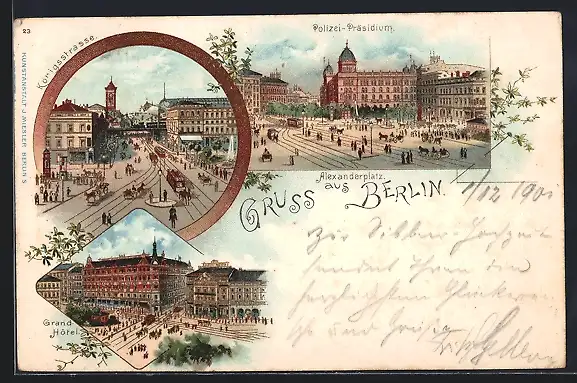 23
Königsstrasse.
Polizei-Präsidium.
KUNSTANSTALT J. MIESLER, BERLIN S.
Alexanderplatz.
GRUSS AUS BERLIN.
Grand Hôtel.
1/12 1901
Zur Silber-Hochzeit
sendet Ihnen den
herzlichsten Glückwunsch
und